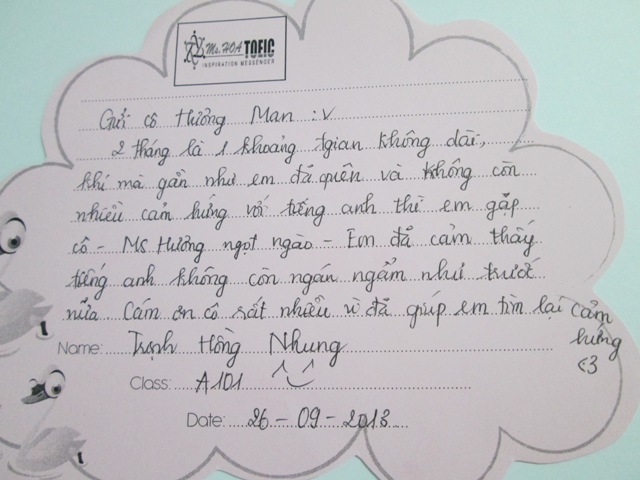 Ms. HOA TOEIC
INSPIRATION MESSENGER
Gửi cô Hương Man :v
2 tháng là 1 khoảng tgian không dài,
khi mà gần như em đã quên và không còn
nhiều cảm hứng với tiếng anh thì em gặp
cô - Ms Hương ngọt ngào - Em đã cảm thấy
tiếng anh không còn ngán ngẩm như trước
nữa Cám ơn cô rất nhiều vì đã giúp em tìm lại cảm
hứng
<3
Name: Trịnh Hồng Nhung
Class: A101
Date: 26-09-2013